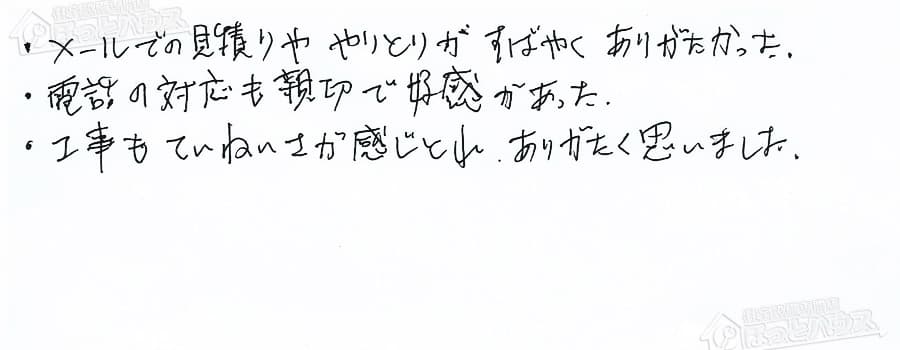 ・メールでの見積りや やりとりが すばやく ありがたかった.
・電話の対応も親切で好感があった.
・工事も ていねいさが感じとれ、ありがたく思いました.
ほっとハウス
ほっとハウス